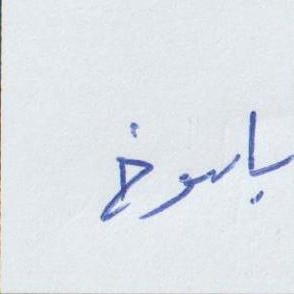 پاسوخ